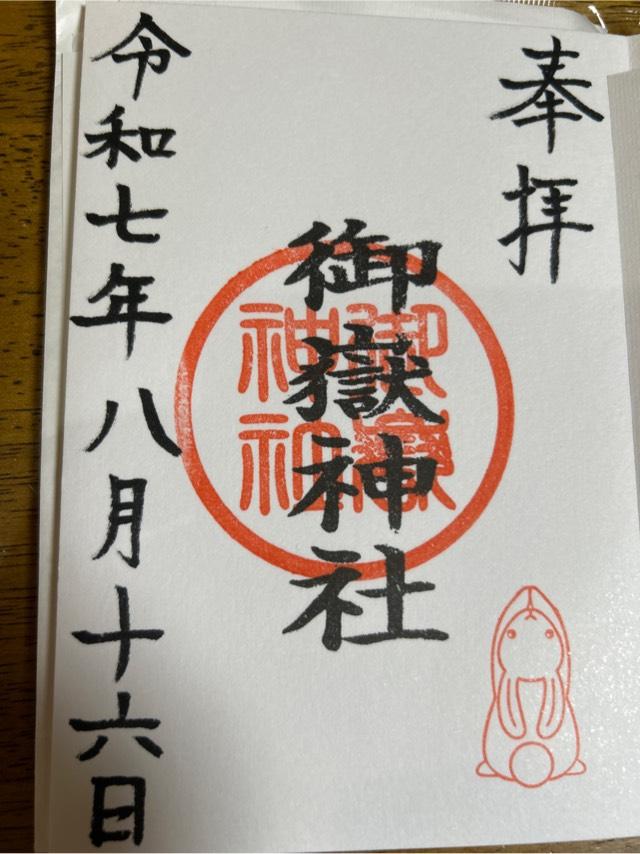 奉拝
御嶽神社
御嶽神社
令和七年八月十六日